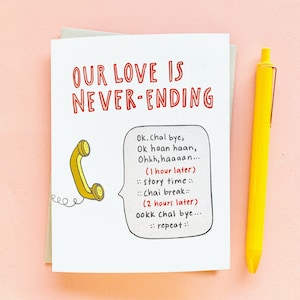 OUR LOVE IS
NEVER-ENDING
Ok. Chal bye,
Ok haan haan,
Ohhh,haaaan...
(1 hour later)
:: story time ::
:: chai break::
(2 hours later)
ookk chal bye...
:: repeat ::